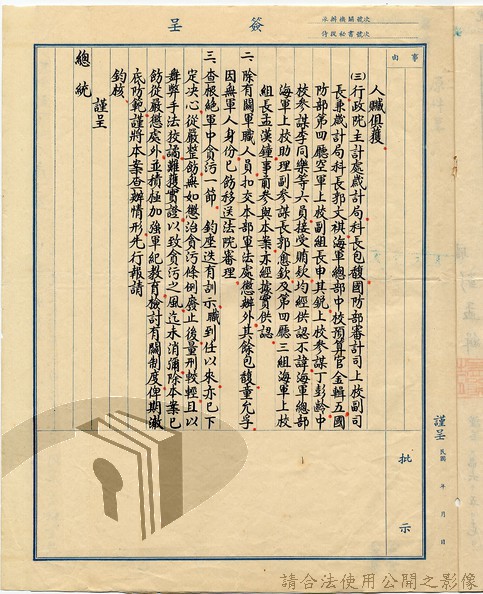 簽呈
來辦機關號次
侍從秘書號次
事由
人贓俱獲
(三)行政院主計處歲計局科長包馥國防部審計司上校副司
長兼歲計局科長郭文祺海軍總部中校預算官金輯五國
防部第四廳空軍上校副組長申其銳上校參謀丁彭齡中
校參謀李同樂等六員接受賄欵均經供認不諱海軍總部
海軍上校助理副參謀長郭愈欽及第四廳三組海軍上校
組長孟漢鐘事前參與本案亦經據實供認
二、除有關軍職人員扣交本部軍法處懲辦外其餘包馥童允孚
因無軍人身份已飭移送法院審理
三、查根絕軍中貪污一節 鈞座迭有訓示職到任以來亦已下
定決心從嚴整飭無如懲治貪污條例廢止後量刑較輕且以
舞弊手法狡譎難獲實證以致貪污之風迄未消彌除本案已
飭從嚴懲處外並積極加強軍紀教育檢討有關制度俾期澈
底防範謹將本案查辦情形先行報請
鈞核
謹呈
總統
批示
謹呈
民國 年 月 日
請合法使用公開之影像